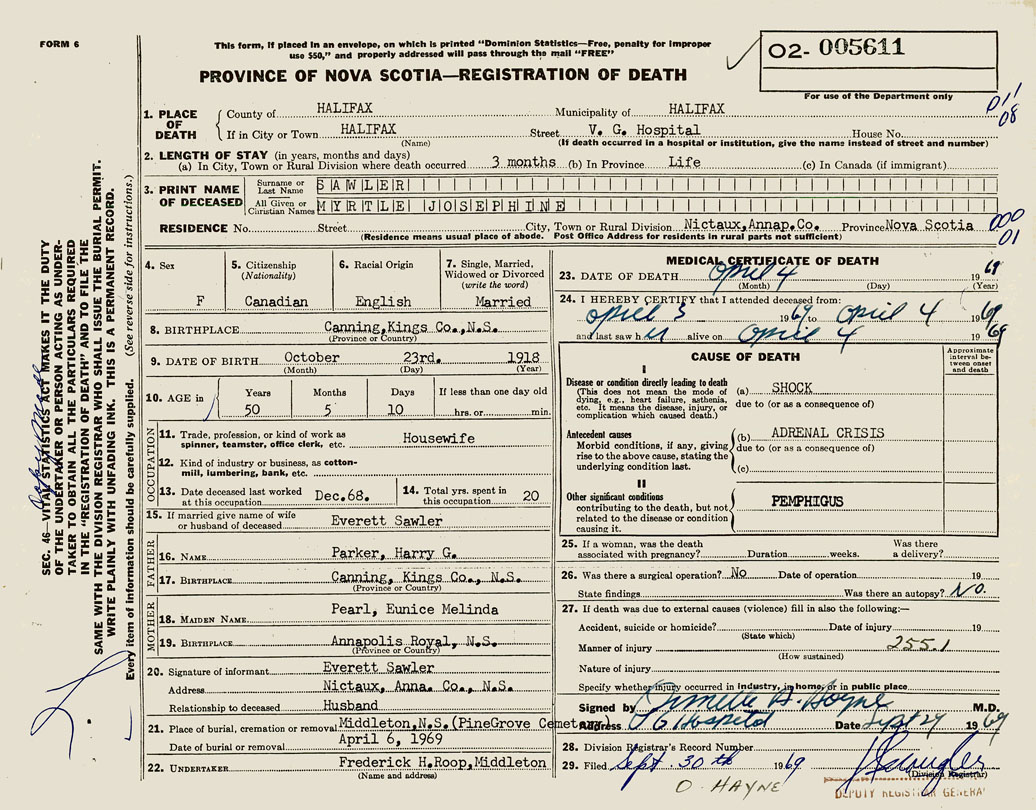 FORM 6
This form, if placed in an envelope, on which is printed "Dominion Statistics—Free, penalty for improper
use $50," and properly addressed will pass through the mail "FREE"
PROVINCE OF NOVA SCOTIA—REGISTRATION OF DEATH
02- 005611
For use of the Department only
011
08
1. PLACE OF DEATH
County of HALIFAX Municipality of HALIFAX
If in City or Town HALIFAX Street V. G. Hospital House No.
(Name) (If death occurred in a hospital or institution, give the name instead of street and number)
2. LENGTH OF STAY (in years, months and days)
(a) In City, Town or Rural Division where death occurred 3 months (b) In Province Life (c) In Canada (if immigrant)
3. PRINT NAME OF DECEASED
Surname or Last Name SAWLER
All Given or Christian Names MYRTLE JOSEPHINE
RESIDENCE No. Street City, Town or Rural Division Nictaux, Annap.Co. Province Nova Scotia
(Residence means usual place of abode. Post Office Address for residents in rural parts not sufficient)
000
01
4. Sex
F
5. Citizenship
(Nationality)
Canadian
6. Racial Origin
English
7. Single, Married,
Widowed or Divorced
(write the word)
Married
8. BIRTHPLACE Canning,Kings Co.,N.S.
(Province or Country)
9. DATE OF BIRTH October 23rd. 1918
(Month) (Day) (Year)
10. AGE in
Years Months Days If less than one day old
50 5 10 hrs. or min.
OCCUPATION
11. Trade, profession, or kind of work as
spinner, teamster, office clerk, etc. Housewife
12. Kind of industry or business, as cotton-
mill, lumbering, bank, etc.
13. Date deceased last worked
at this occupation Dec.68.
14. Total yrs. spent in
this occupation 20
15. If married give name of wife
or husband of deceased Everett Sawler
FATHER
16. NAME Parker, Harry G.
17. BIRTHPLACE Canning, Kings Co., N.S.
(Province or Country)
MOTHER
18. MAIDEN NAME Pearl, Eunice Melinda
19. BIRTHPLACE Annapolis Royal, N.S.
(Province or Country)
20. Signature of informant Everett Sawler
Address Nictaux, Anna. Co., N.S.
Relationship to deceased Husband
21. Place of burial, cremation or removal Middleton,N.S.(PineGrove Cemetery)
Date of burial or removal April 6, 1969
22. UNDERTAKER Frederick H.Roop,Middleton
(Name and address)
MEDICAL CERTIFICATE OF DEATH
23. DATE OF DEATH April 4 1969
(Month) (Day) (Year)
24. I HEREBY CERTIFY that I attended deceased from:
April 3 1969 to April 4 1969
and last saw h er alive on April 4 1969
CAUSE OF DEATH
Approximate
interval be-
tween onset
and death
I
Disease or condition directly leading to death
(This does not mean the mode of
dying, e.g., heart failure, asthenia,
etc. It means the disease, injury, or
complication which caused death.)
(a) SHOCK
due to (or as a consequence of)
Antecedent causes
Morbid conditions, if any, giving
rise to the above cause, stating the
underlying condition last.
(b) ADRENAL CRISIS
due to (or as a consequence of)
(c)
II
Other significant conditions
contributing to the death, but not
related to the disease or condition
causing it.
PEMPHIGUS
25. If a woman, was the death
associated with pregnancy? Duration weeks. Was there
a delivery?
26. Was there a surgical operation? No Date of operation 19
State findings Was there an autopsy? No.
27. If death was due to external causes (violence) fill in also the following:—
Accident, suicide or homicide? Date of injury 19
(State which)
Manner of injury 255.1
(How sustained)
Nature of injury
Specify whether injury occurred in industry, in home, or in public place
Signed by M.D.
Address V G Hospital Date Sept 29 1969
28. Division Registrar's Record Number
29. Filed Sept 30th 1969
(Division Registrar)
O. HAYNE
DEPUTY REGISTRAR GENERAL
SEC. 46—VITAL STATISTICS ACT MAKES IT THE DUTY
OF THE UNDERTAKER OR PERSON ACTING AS UNDER-
TAKER TO OBTAIN ALL THE PARTICULARS REQUIRED
IN THE "REGISTRATION OF DEATH" AND TO FILE THE
SAME WITH THE DIVISION REGISTRAR WHO SHALL ISSUE THE BURIAL PERMIT.
WRITE PLAINLY WITH UNFADING INK. THIS IS A PERMANENT RECORD.
Every item of information should be carefully supplied. (See reverse side for instructions.)